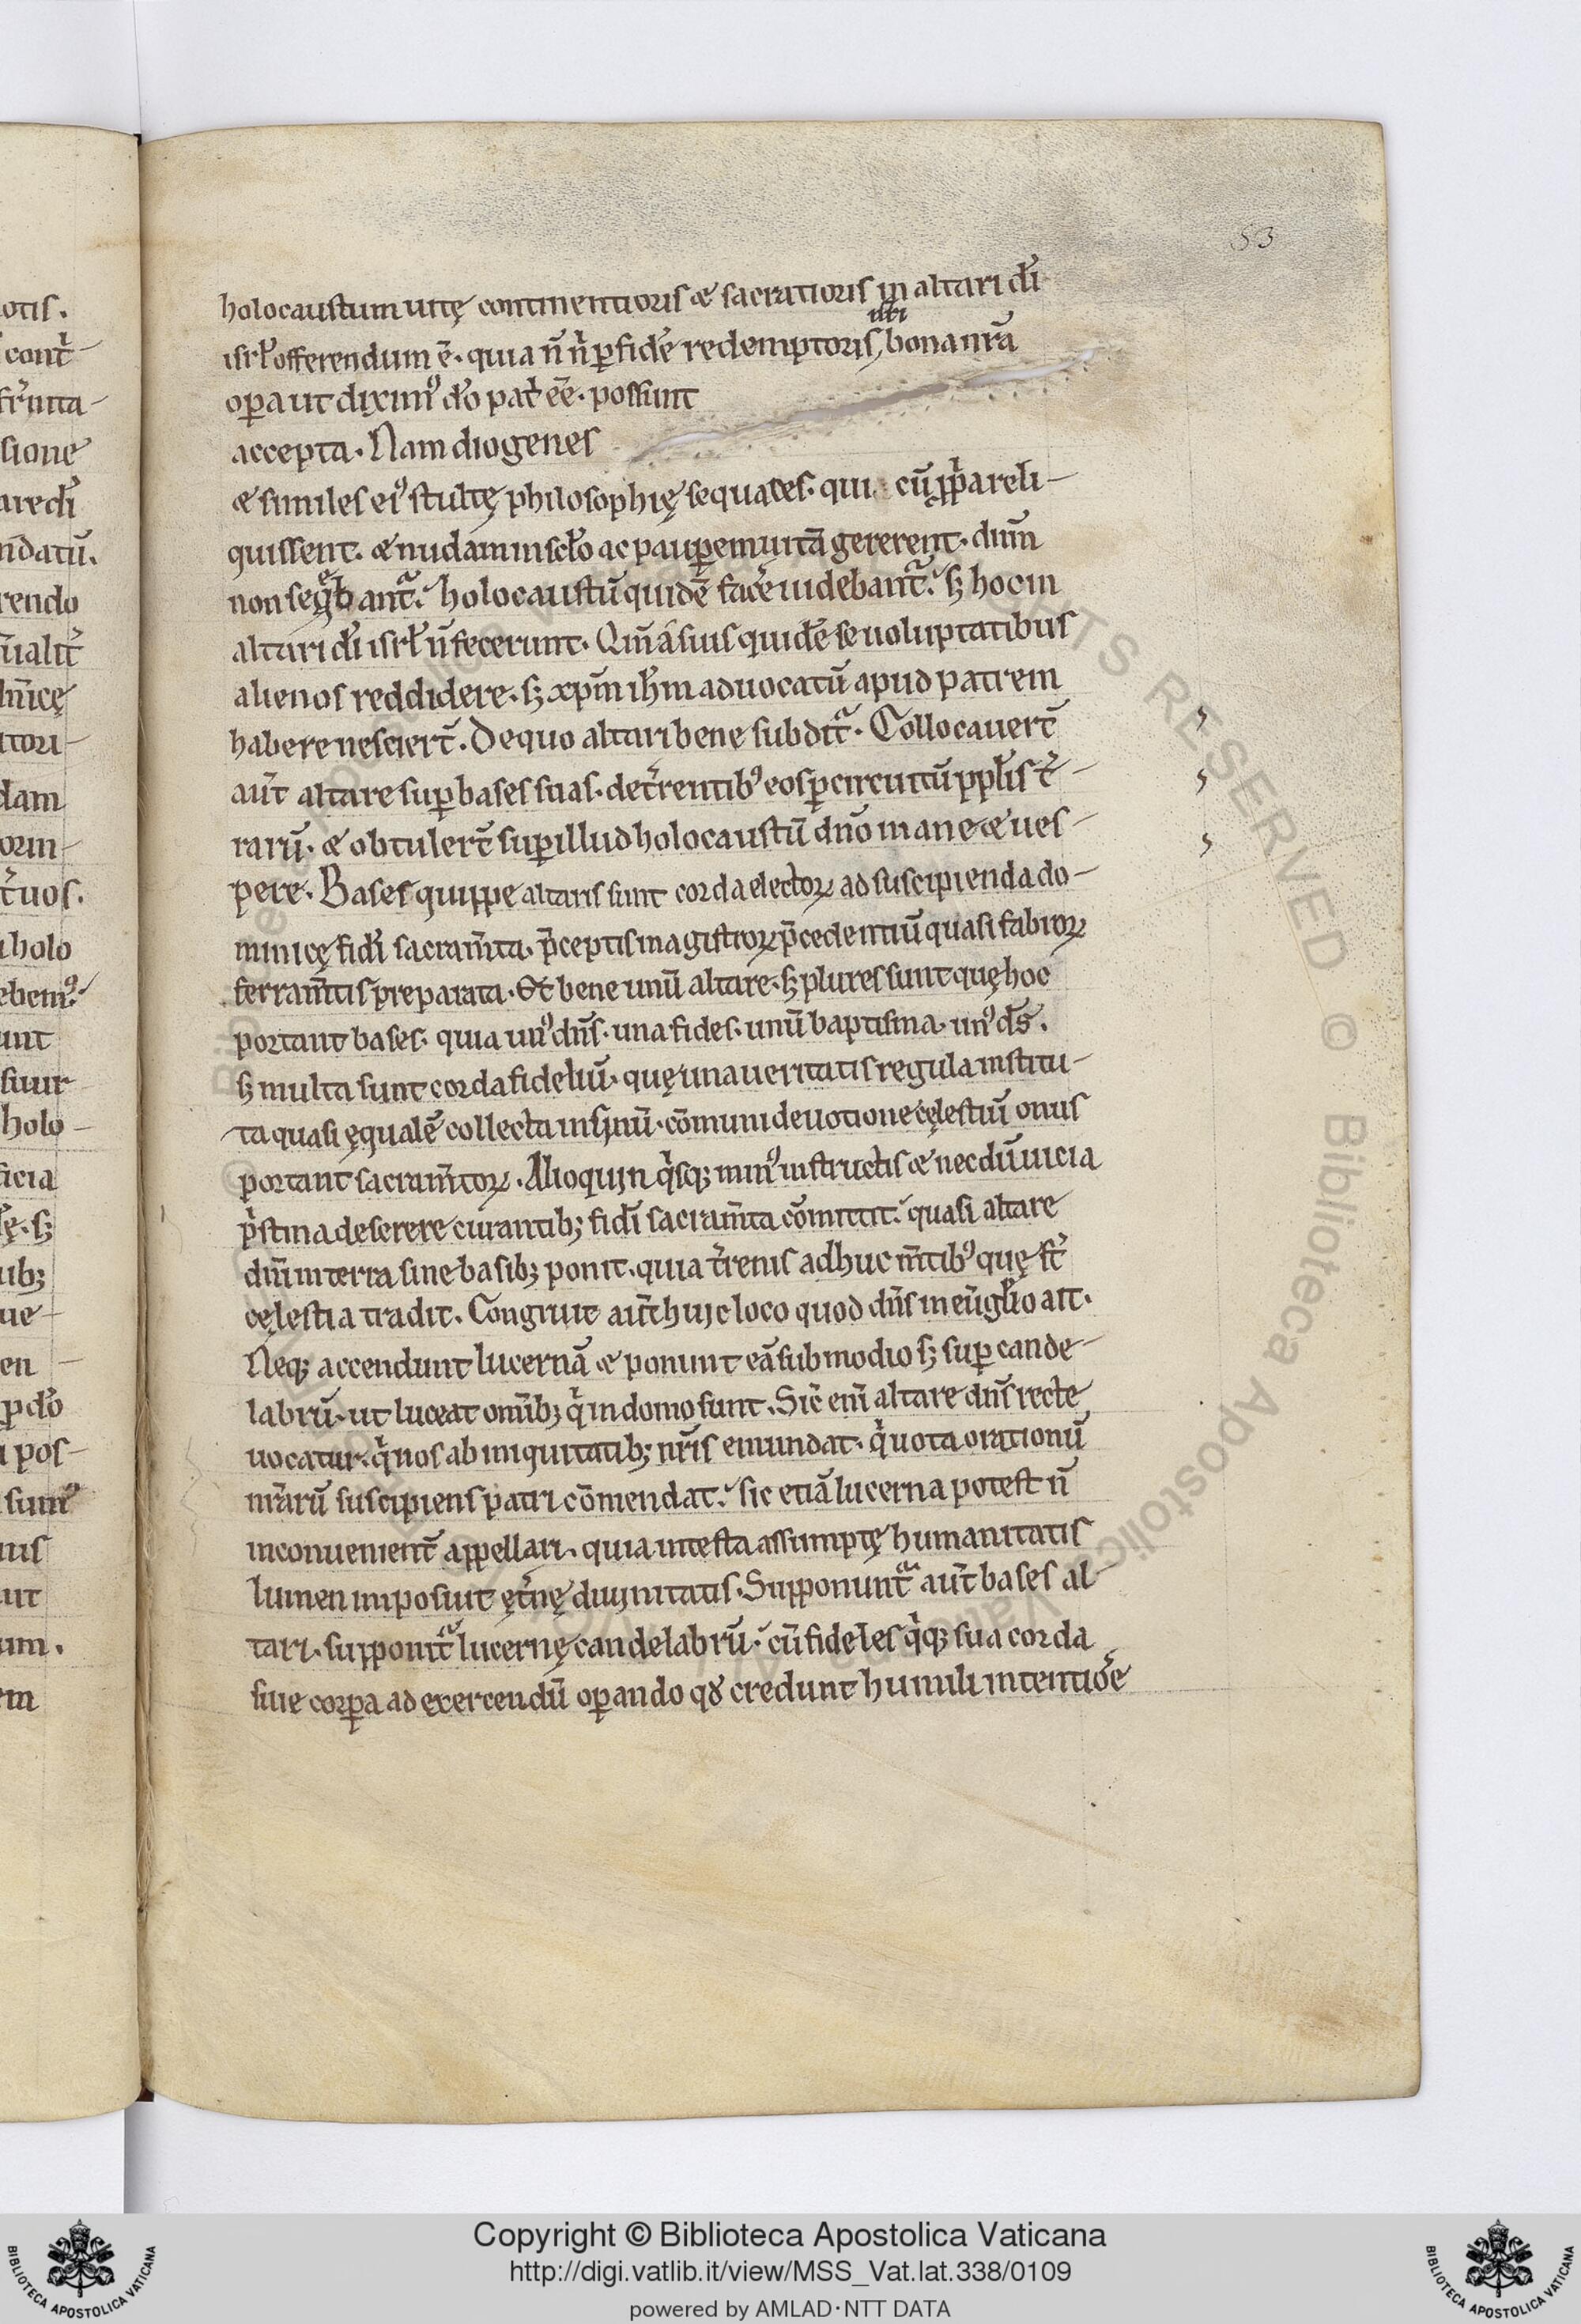 53
holocaustum uitę continentioris & sacratioris in altari dī
isrł offerendum ē. quia ñ nͥ p̱ fidē redemptoris, bona nr̄a
nr̄i
op̱a ut diximꝰ dō patͥ eē. possunt
accepta. Nam diogenes
& similes eiꝰ stultę philosophię sequaces. qui cū ꝓpͥa reli-
quissent. & nudam in scło ac paup̱em uitā gererent. dūm
non seqͣbantᷓ. holocaustū quidē facͤe uidebantᷓ. sꝫ hoc in
altari dī isrł ñ fecerunt. Qm̄ a suis quidē se uoluptatibus
alienos reddidere. sꝫ xpm̄ ihm̄ aduocatū apud patrem
habere nescierť. De quo altari bene subditᷓ. Collocauerť
auť altare sup̱ bases suas. deťrentibꝰ eos p̱ circuitū ppłis ť-
rarū. & obtulerť sup̱ illud holocaustū dn̄o mane & ues-
pere. Bases quippe altaris sunt corda electoꝝ ad suscipienda do-
minicę fidī sacram̄ta. p̄ceptis magistroꝝ p̄cedentiū quasi fabroꝝ
ferram̄tis preparata. Et bene unū altare. sꝫ plures sunt quę hoc
portant bases. quia unꝰ dn̄s. una fides. unū baptisma. unꝰ ds̄.
sꝫ multa sunt corda fideliū. quę una ueritatis regula institu-
ta quasi ęqualē collecta in sꝯnū. cōmuni deuotione cęlestiū onus
portant sacram̄toꝝ. Alioquin qͥsqꝫ minꝰ instructis & necdū uicia
pͥstina deserere curantibꝫ fidī sacram̄ta cōmittit. quasi altare
dn̄i in terra sine basibꝫ ponit. quia ťrenis adhuc m̄tibꝰ quę sť
cęlestia tradit. Congruit auť huic loco quod dn̄s in euglīo ait.
Neqꝫ accendunt lucernā & ponunt eā sub modio sꝫ sup̱ cande-
labrū. ut luceat om̄ibꝫ qͥ in domo sunt. Sic̄ eni altare dn̄s recte
uocatur. qͥ nos ab iniquitatibꝫ nr̄is emundat. qͥ uota orationū
nr̄arū suscipiens patri cōmendat. sic etiā lucerna potest ñ
inconuenienť appellari. quia in testa assumptę humanitatis
lumen imposuit ęťnę diuinitatis. Supponuntᷓ auť bases al-
tari. supponitᷓ lucernę candelabrū. cū fideles qͥqꝫ sua corda
siue corp̱a ad exercendū op̱ando qď credunt humili intentiōe
otis.
contͣ-
sione
aredī
ndatū.
rendo
ualiť
tori-
dam
tͥuos.
holo
ebemꝰ
unt
holo-
ficia
ę. sꝫ
ibꝫ
ue-
en -
p dō
pos-
sumꝰ
uis
ut
um.
em
© Biblioteca Apostolica Vaticana
RIGHTS RESERVED
Copyright © Biblioteca Apostolica Vaticana
http://digi.vatlib.it/view/MSS_Vat.lat.338/0109
powered by AMLAD·NTT DATA
BIBLIOTECA APOSTOLICA VATICANA
BIBLIOTECA APOSTOLICA VATICANA